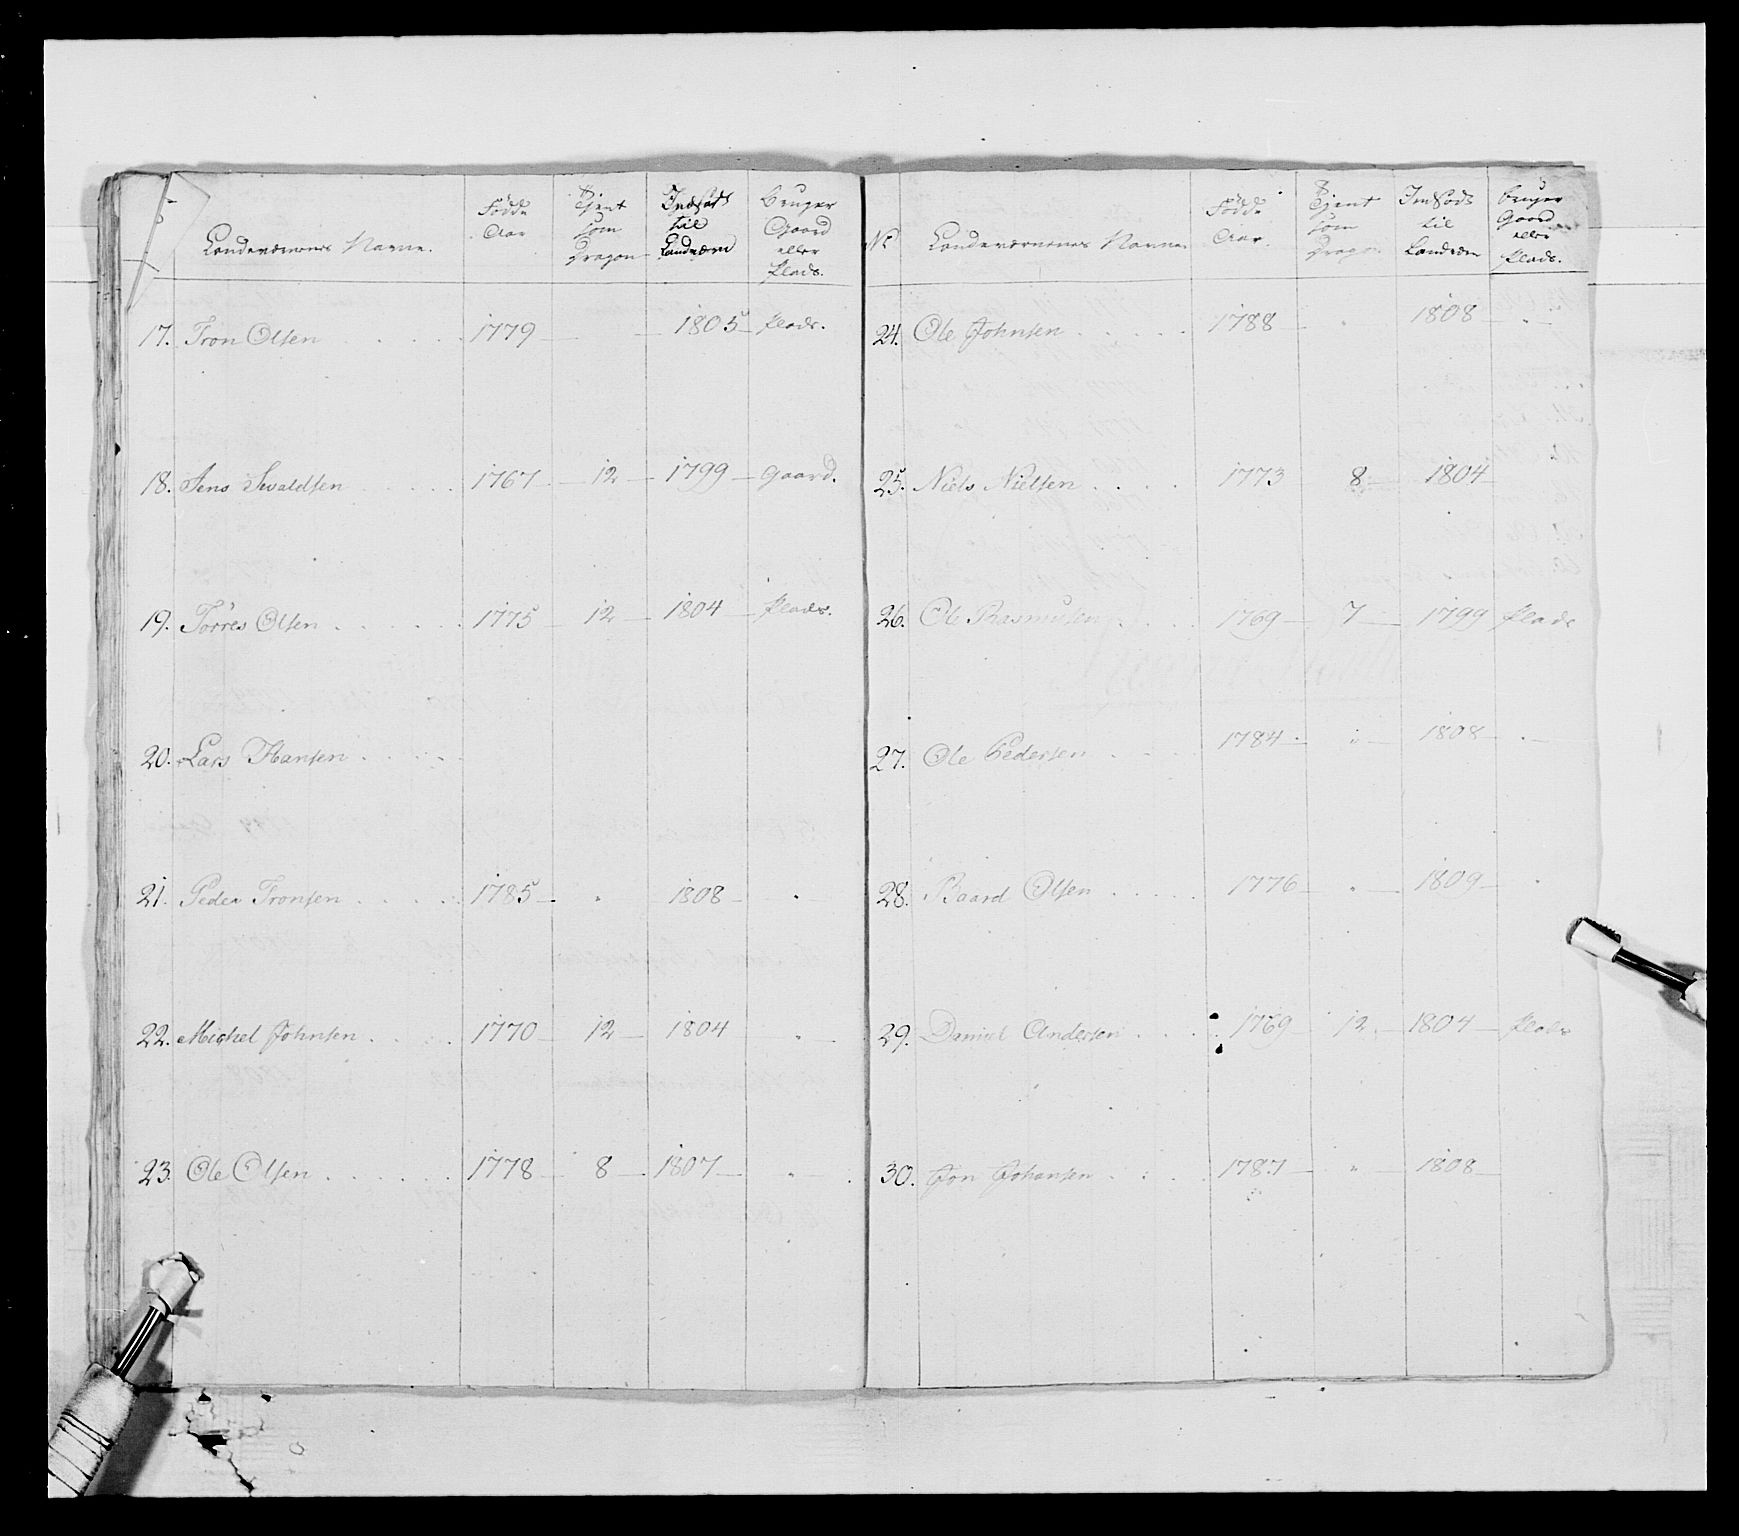 Landeværnenes Navne. Fødde Aar Tjent som Dragon Indsadt til Landværn Bruger Gaard eller Plads.
17. Tron Olsen . . . . . 1779 — — 1805 — Plads.
18. Jens Sivaldsen . . . . 1767 — 12 — 1799 — Gaard.
19. Törres Olsen . . . . . 1775 — 12 — 1804 — Plads.
20. Lars Hansen . . . . .
21. Peder Tronsen . . . . . 1785 — " 1808 — "
22. Michel Johnsen . . . . 1770 — 12 — 1804 — " —
23. Ole Olsen . . . . . . 1778 — 8 — 1807 — "
No Landeværnenes Navne Fødde Aar. Tjent som Dragon Indsads til Landværn Bruger Gaard eller Plads.
24. Ole Johnsen . . . . . 1788 — " 1808 — " —
25. Niels Nielsen . . . . 1773 8 — 1804 —
26. Ole Rasmusen . . . . 1769 — 7 — 1799 Plads
27. Ole Pedersen . . . . 1784 — " — 1808 — " —
28. Baard Olsen . . . . . 1776 — " — 1809 — "
29. Daniel Andersen . . . . 1769 — 12 — 1804 — Plads
30. Jon Johansen . . . . 1787 — " — 1808 —